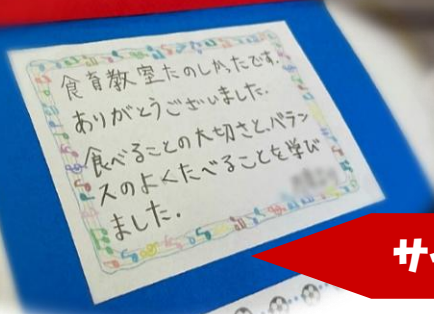 食育教室たのしかったです.
ありがとうございました.
食べることの大切さと、バラン
スのよくたべることを学び
ました.
サ